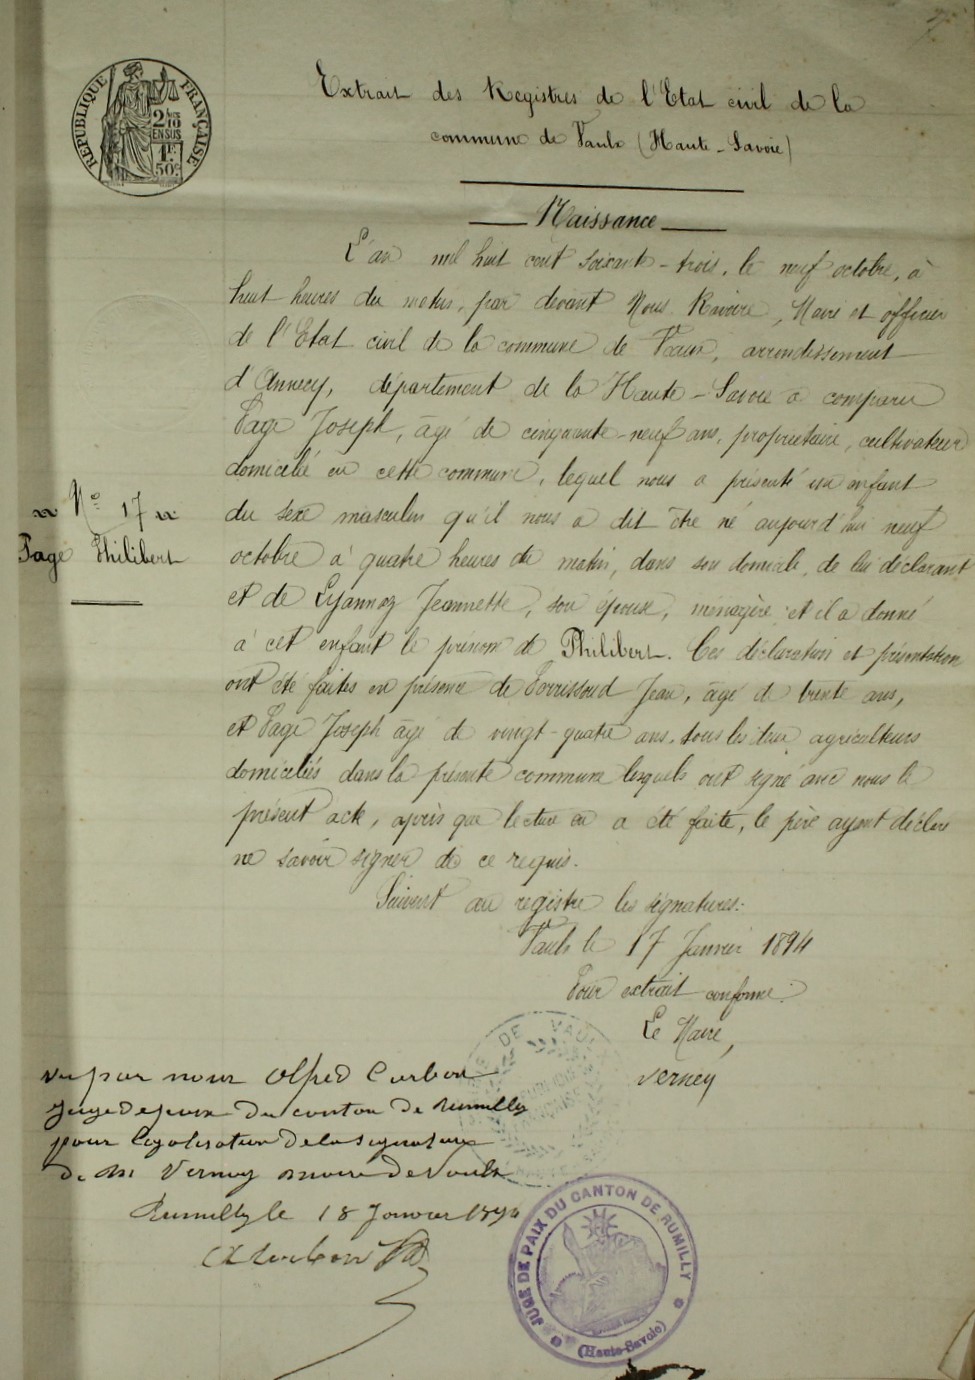 RÉPUBLIQUE FRANÇAISE
2 10
EN SUS
1F
50c
Extrait des Registres de l'Etat civil de la
commune de Vaulx (Haute-Savoie)
Naissance
L'an mil huit cent soixante-trois, le neuf octobre, à
huit heures du matin, par devant Nous Ravoire, Maire et officier
de l'Etat civil de la commune de Vaulx, arrondissement
d'Annecy, département de la Haute-Savoie a comparu
Page Joseph, âgé de cinquante-neuf ans, propriétaire, cultivateur
domicilié en cette commune, lequel nous a présenté un enfant
du sexe masculin qu'il nous a dit être né aujourd'hui neuf
octobre à quatre heures du matin, dans son domicile, de lui déclarant
et de Lyannaz Jeannette, son épouse, ménagère et il a donné
à cet enfant le prénom de Philibert. Ces déclaration et présentation
ont été faites en présence de Jean, âgé de trente ans,
et Page Joseph âgé de vingt-quatre ans, tous les deux agriculteurs
domiciliés dans la présente commune lesquels ont signé avec nous le
présent acte, après que lecture en a été faite, le père ayant déclaré
ne savoir signer de ce requis.
Suivent au registre les signatures:
Vaulx le 17 Janvier 1894
Pour extrait conforme:
Le Maire,
Verney
No 17
Page Philibert
DE VAULX
Vu par nous Alfred Curbon
Juge de paix du canton de Rumilly
pour légalisation de la signature
de M Verney maire de Vaulx
Rumilly le 18 Janvier 1894
JUGE DE PAIX DU CANTON DE RUMILLY
(Haute-Savoie)